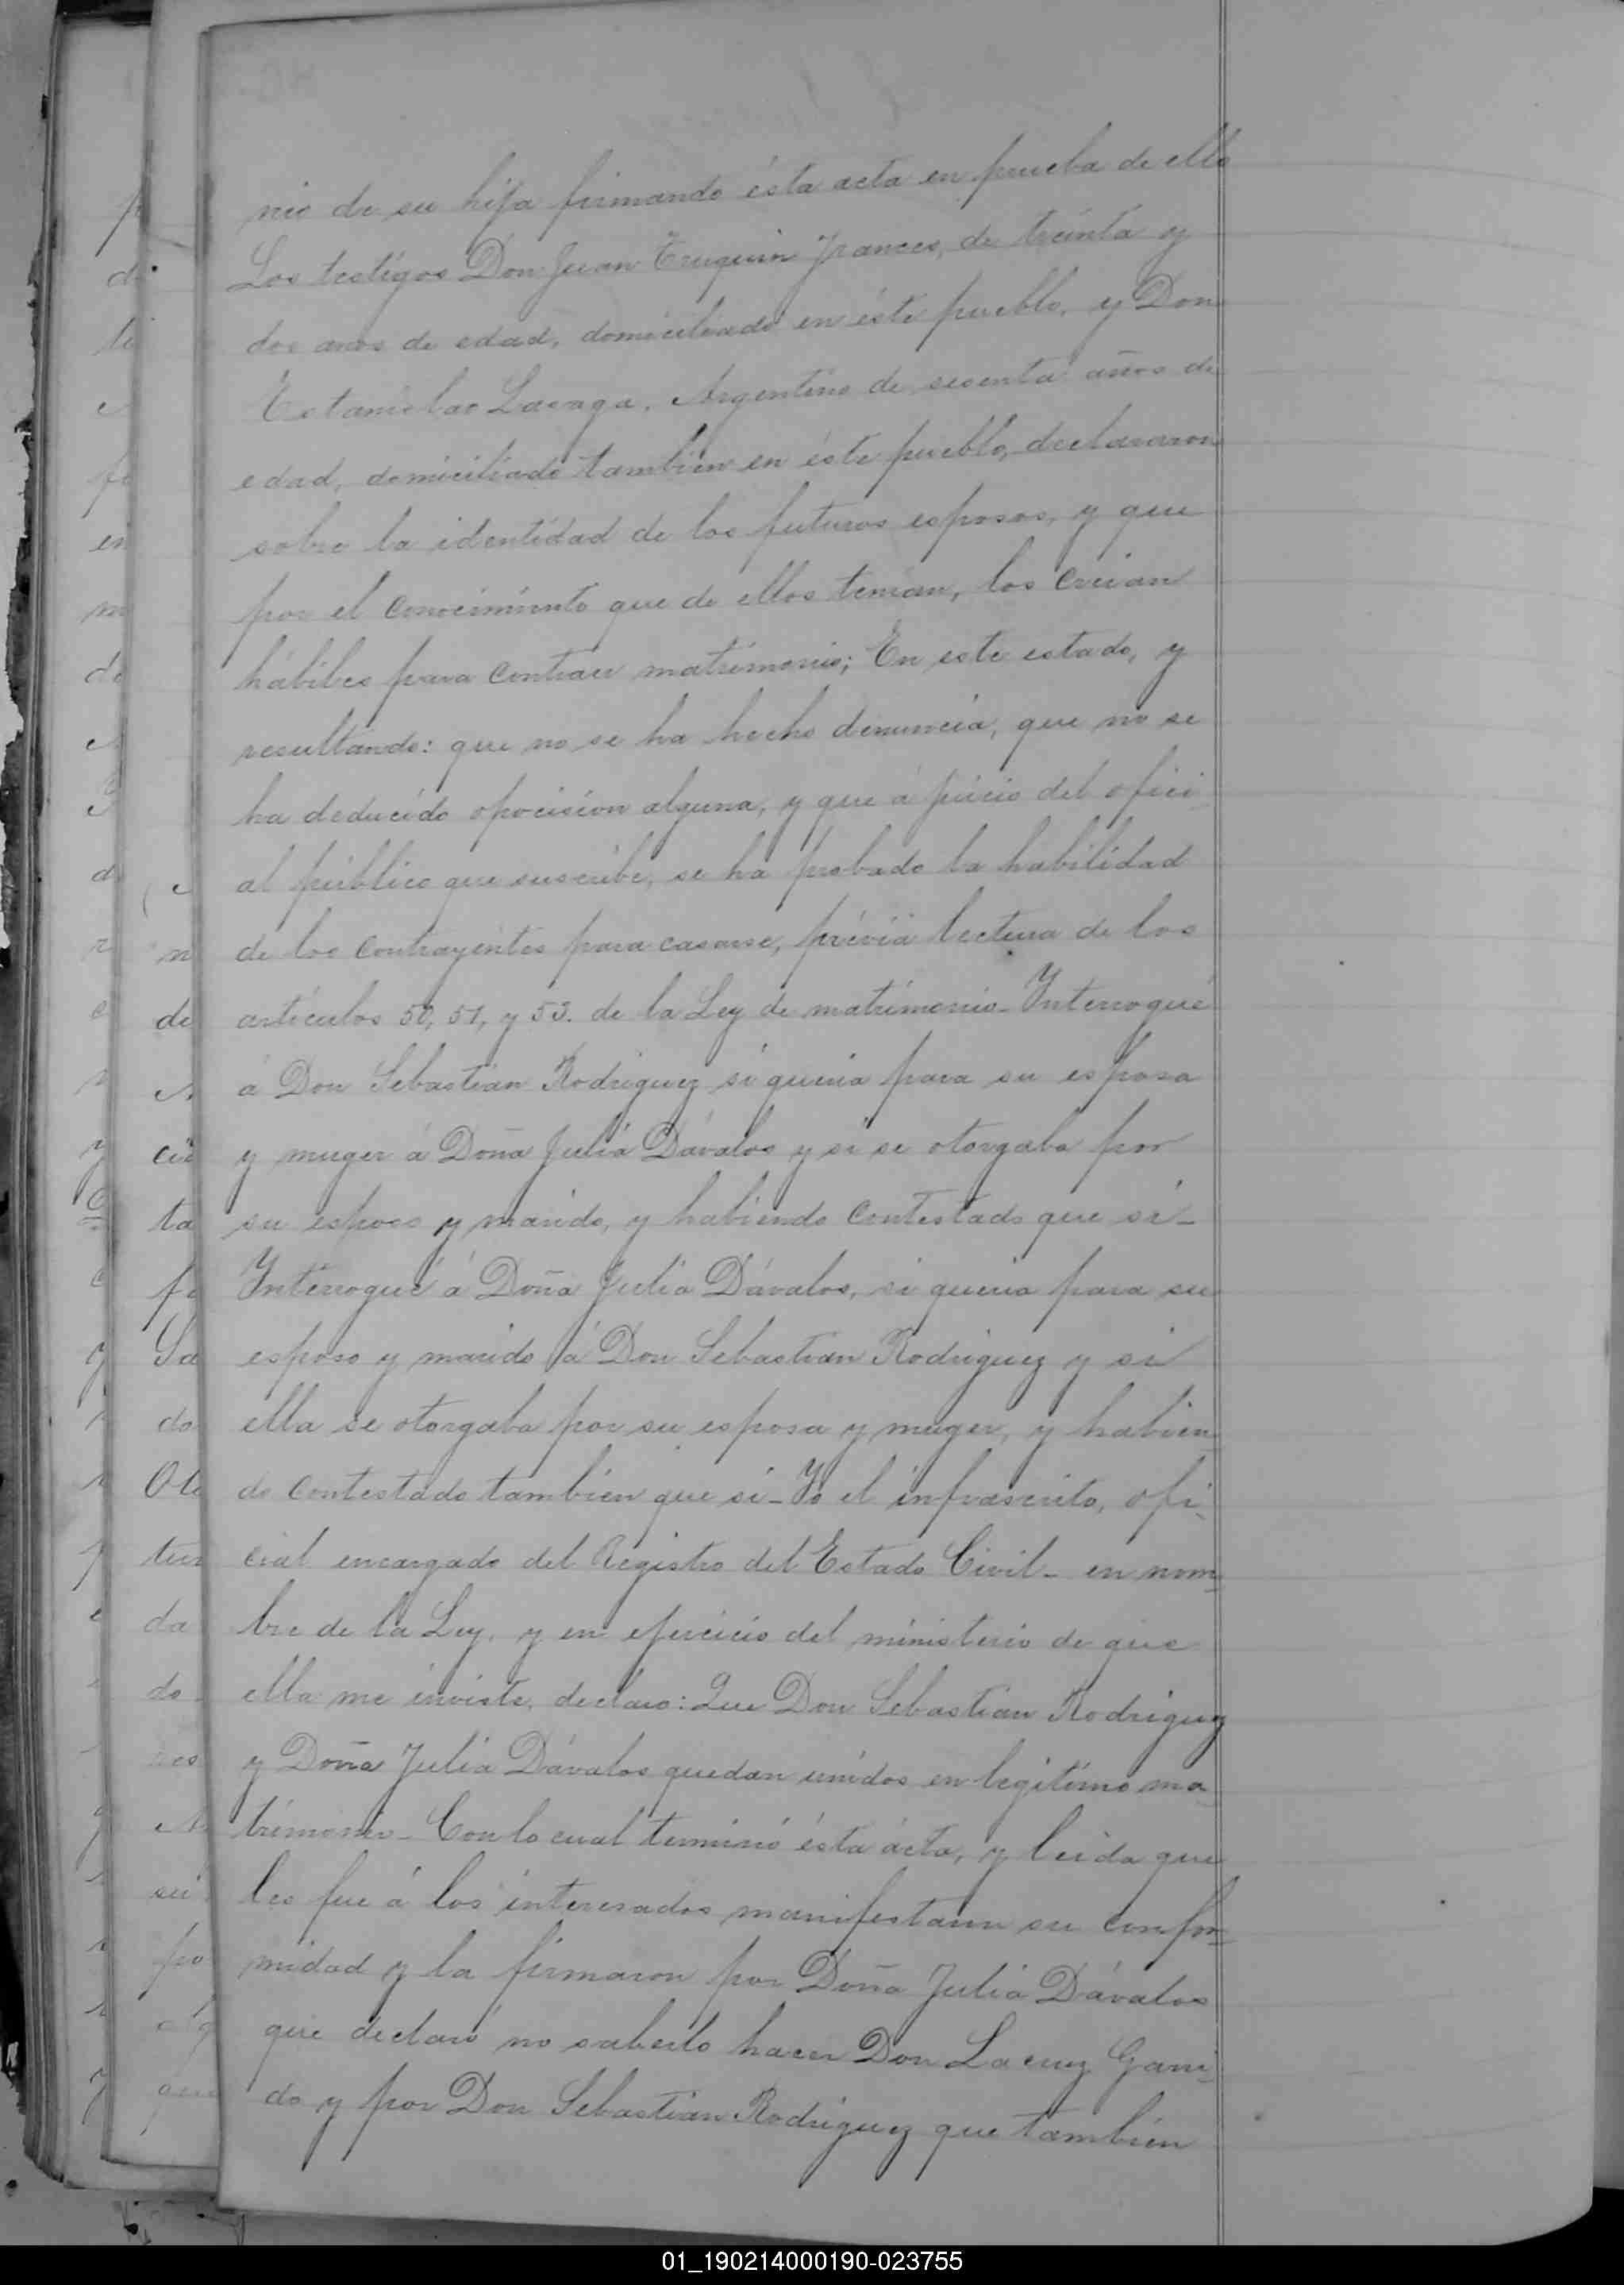 nio de su hija firmando ésta acta en prueba de ello
Los testigos Don Juan Eruquin Frances, de treinta y
dos anos de edad, domiciliado en éste pueblo, y Don
Estanislao Lasaga, Argentino de sesenta años de
edad, domiciliado tambien en éste pueblo, declararon
sobre la identidad de los futuros esposos, y que
por el conocimiento que de ellos tenian, los creian
hábiles para contraer matrimonio; En este estado, y
resultando: que no se ha hecho denuncia, que no se
ha deducido oposicion alguna, y que á juicio del ofici
al público que suscribe, se ha probado la habilidad
de los contrayentes para casarse, prévia lectura de los
artículos 50, 51, y 53. de la Ley de matrimonio_ Interrogué
á Don Sebastian Rodriguez si queria para su esposa
y muger á Doña Julia Dávalos y si se otorgaba por
su esposo y marido, y habiendo contestado que si_
Interrogué á Doña Julia Dávalos, si queria para su
esposo y marido á Don Sebastian Rodriguez y si
ella se otorgaba por su esposa y muger, y habien
do contestado tambien que si_ Yo el infrascrito, ofi_
cial encargado del Registro del Estado Civil_ en nom_
bre de la Ley, y en ejercicio del ministerio de que
ella me inviste, declaro: Que Don Sebastian Rodriguez
y Doña Julia Dávalos quedan unidos en legítimo ma_
trimonio_ Con lo cual terminó ésta ácta, y leida que
les fue á los interesados manifestaron su confor_
midad y la firmaron por Doña Julia Dávalos
que declaró no saberlo hacer Don Lacruz Garri_
do y por Don Sebastian Rodriguez que tambien
01_190214000190-023755